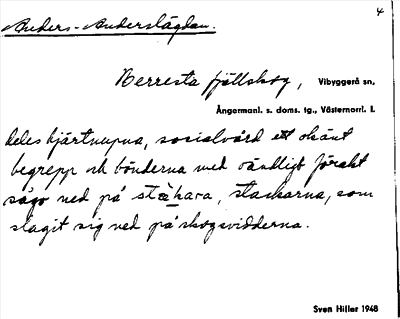 4
Anders-Anderslägdan.
Berresta fjällskog, Vibyggerå sn,
Ångermanl. s. doms. tg., Västernorrl. l.
deles hjärtnupna, socialvård ett okänt
begrepp och bönderna med oändligt förakt
sågo ned på stàkara, stackarna, som
slagit sig ned på skogsvidderna.
Sven Hiller 1948